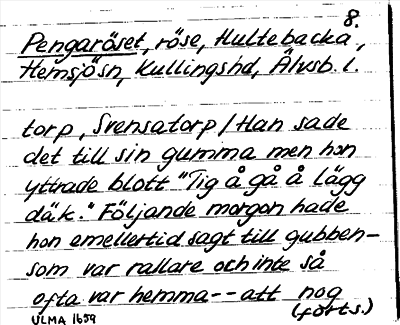 8.
Pengaröset, röse, Hultebacka,
Hemsjösn, Kullingshd, Älvsb. l.
torp, Svensatorp/Han sade
det till sin gumma men hon
yttrade blott "Tig å gå å lägg
däk." Följande morgon hade
hon emellertid sagt till gubben-
som var rallare och inte så
ofta var hemma-- att nog
(forts.)
ULMA 1659